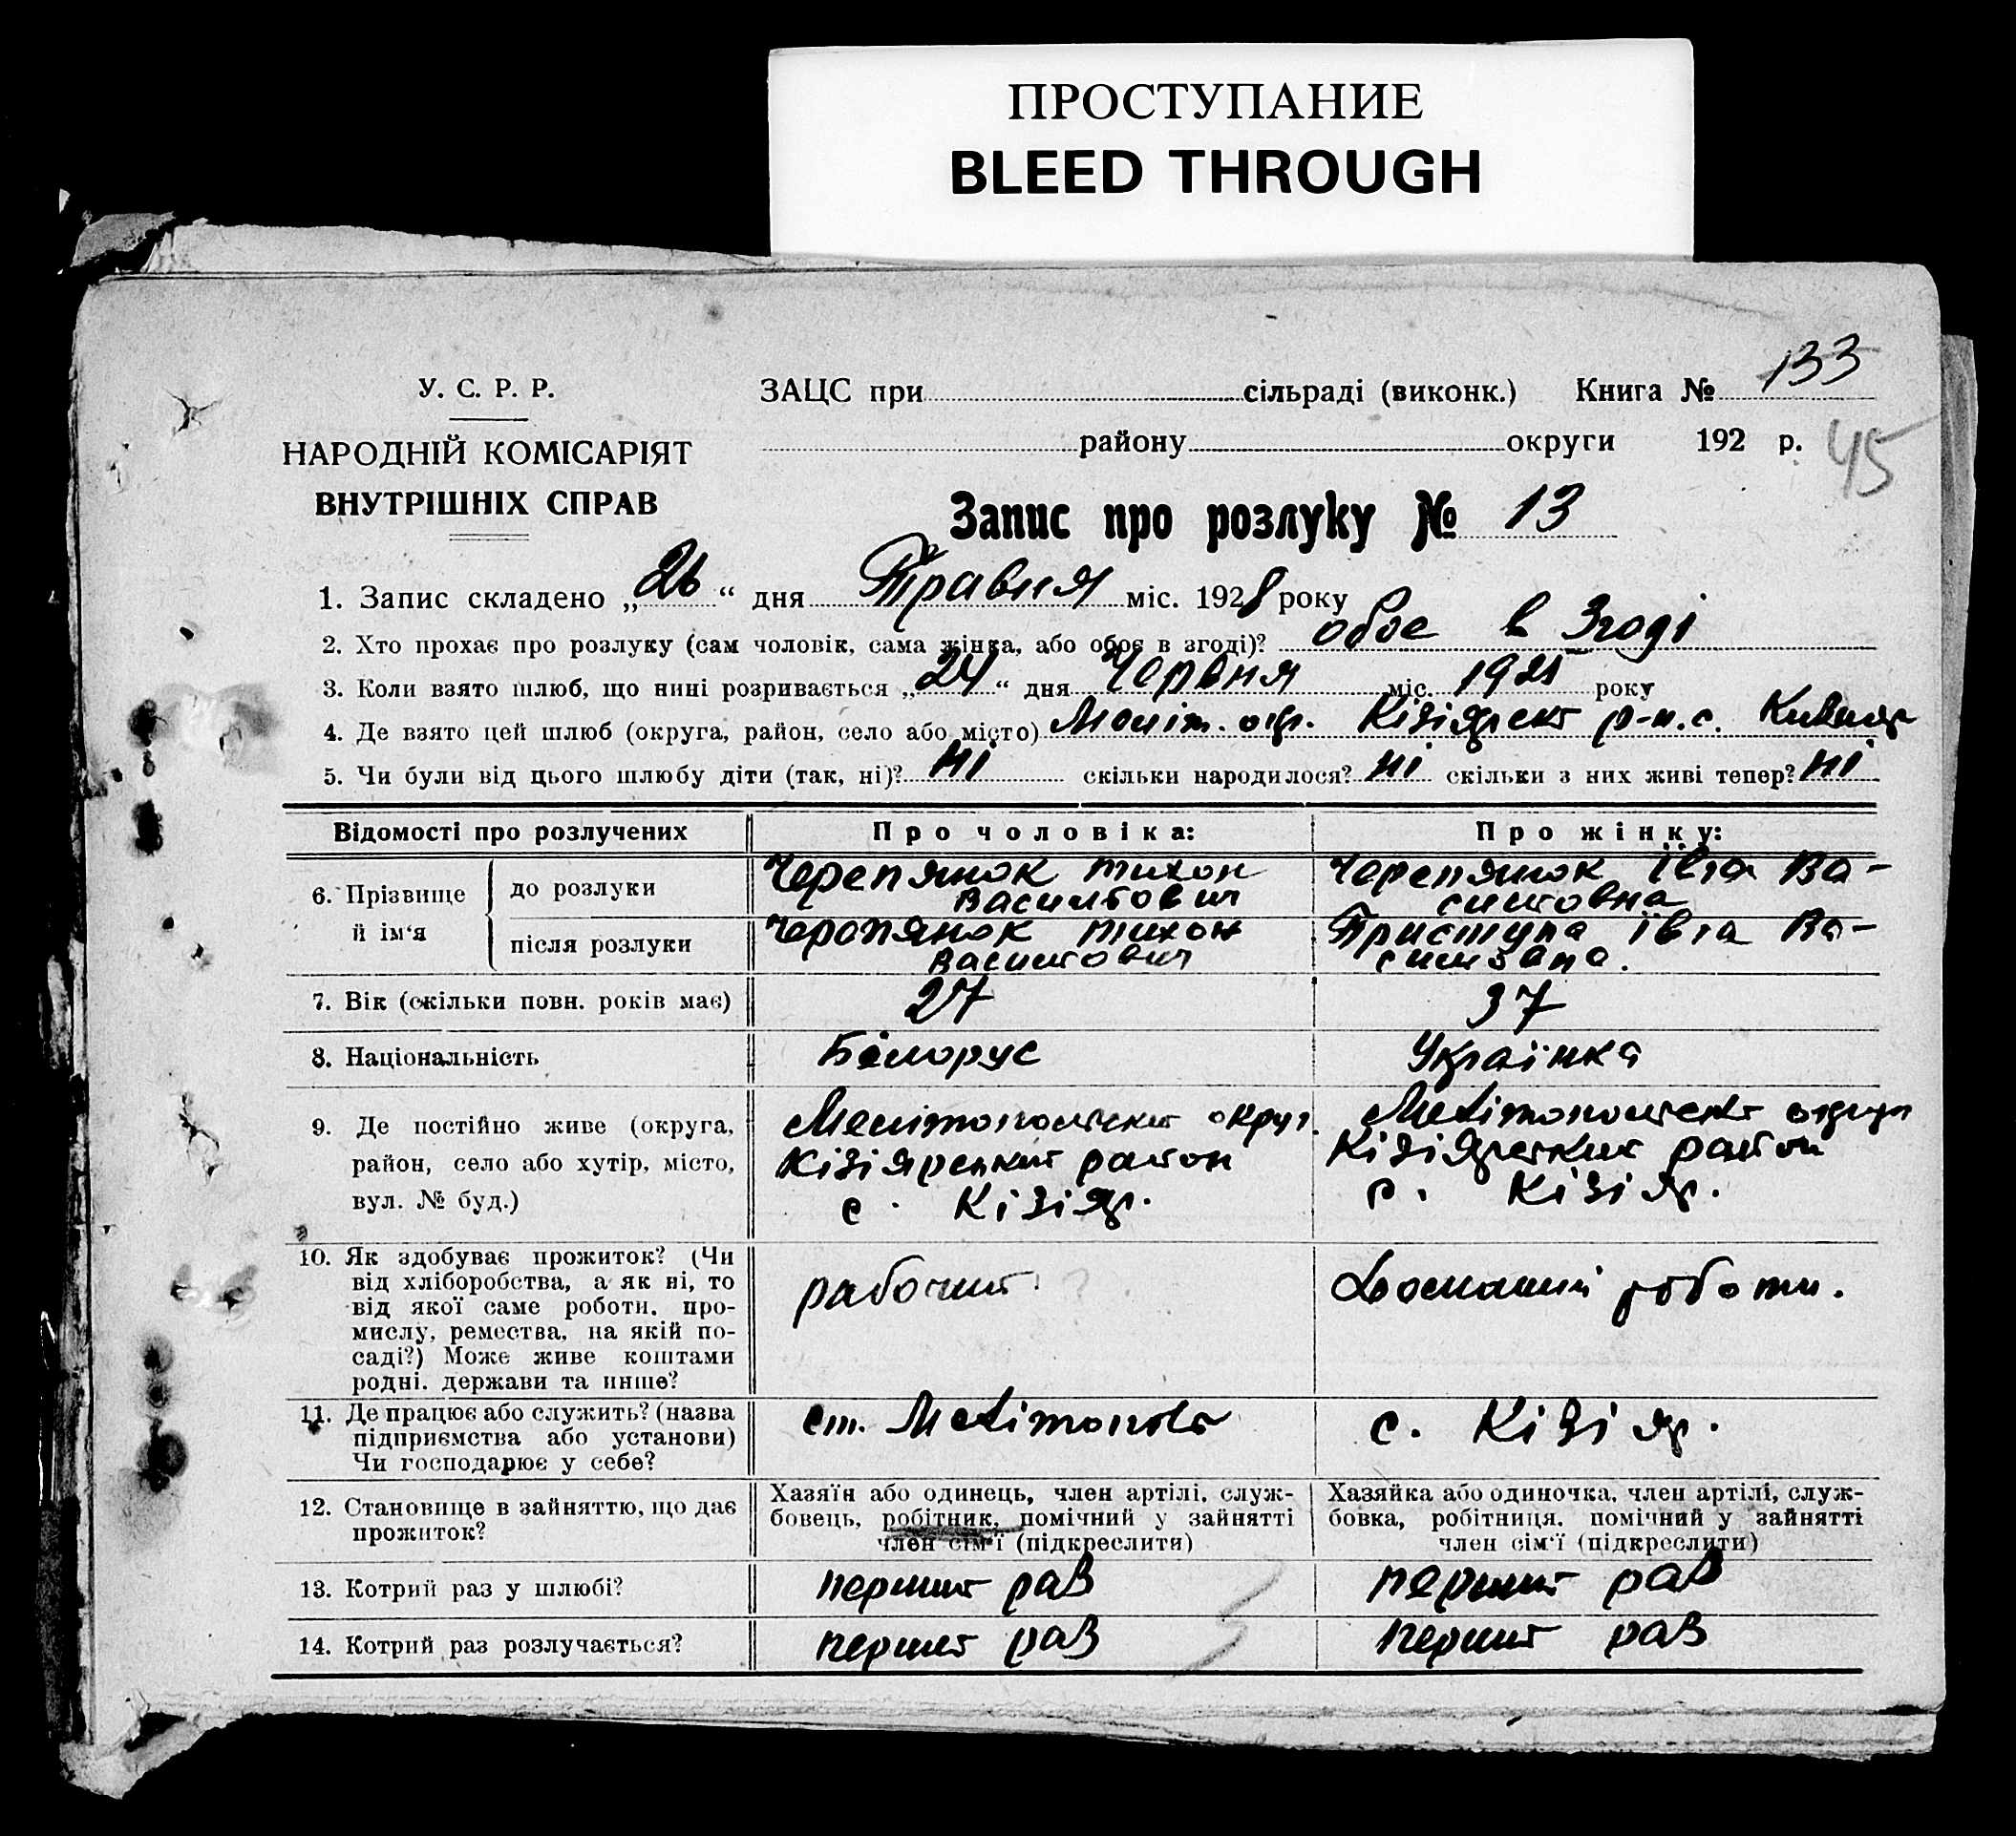 ПРОСТУПАНИЕ
BLEED THROUGH
У. С. Р. Р.
НАРОДНІЙ КОМІСАРІЯТ
ВНУТРІШНІХ СПРАВ
ЗАЦС при сільраді (виконк.) Книга № 133
району округи 192 р. 45
Запис про розлуку № 13
1. Запис складено „26“ дня Травня міс. 1928 року
2. Хто прохає про розлуку (сам чоловік, сама жінка, або обоє в згоді)? обоє в Згоді
3. Коли взято шлюб, що нині розривається „24“ дня Червня міс. 1925 року
4. Де взято цей шлюб (округа, район, село або місто) Моліт. окр. Кізіярськ р-н. с.
5. Чи були від цього шлюбу діти (так, ні)? ні скільки народилося? ні скільки з них живі тепер? ні
Відомості про розлучених
Про чоловіка:
Про жінку:
6. Прізвище й ім‘я
до розлуки
Черепянок тихон
Васильович
Черепянок Ївга Ва-
сильовна
після розлуки
Черопянок тихон
Васильович
Приступа Ївга Ва-
7. Вік (скільки повн. років має)
27
37
8. Національність
Білорус
Українка
9. Де постійно живе (округа,
район, село або хутір, місто,
вул. № буд.)
Мелітопольська округ.
Кізіярський район
с. Кізіяр.
Мелітопольська округ
Кізіярський район
с. Кізіяр.
10. Як здобуває прожиток? (Чи
від хліборобства, а як ні, то
від якої саме роботи, про-
мислу, ремества, на якій по-
саді?) Може живе коштами
родні, держави та инше?
рабочий
Домашній роботи.
11. Де працює або служить? (назва
підприємства або установи)
Чи господарює у себе?
ст. Мелітополь
с. Кізіяр.
12. Становище в зайняттю, що дає
прожиток?
Хазяїн або одинець, член артілі, служ-
бовець, робітник, помічний у зайнятті
член сім‘ї (підкреслити)
Хазяйка або одиночка, член артілі, служ-
бовка, робітниця, помічний у зайнятті
член сім‘ї (підкреслити)
13. Котрий раз у шлюбі?
перший раз
перший раз
14. Котрий раз розлучається?
перший раз
перший раз